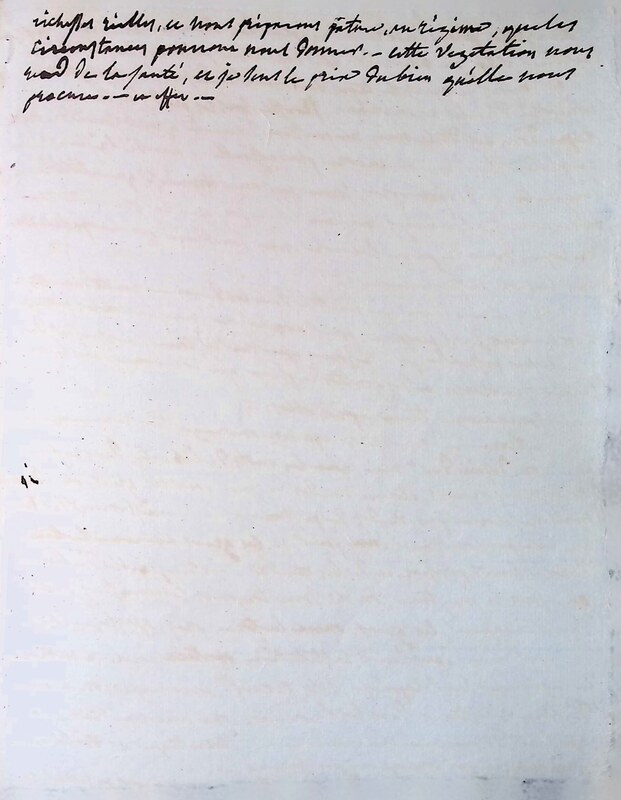 richesses réelles, ce nous préparons nature, en régime, que les
circonstances pourront nous donner. - cette vegetation nous
rend de la santé, et je sens le prix du bien qu'elle nous
procure. - en effet -